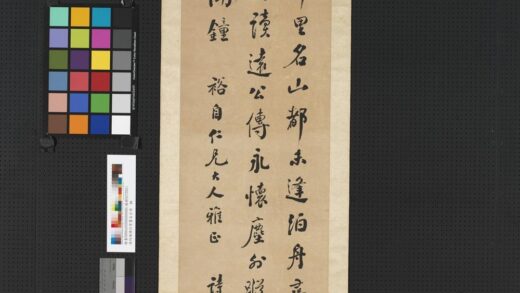 里名山都未逢泊舟
讀遠公傳永懷塵外蹤
鐘 裕自仁兄大人雅正